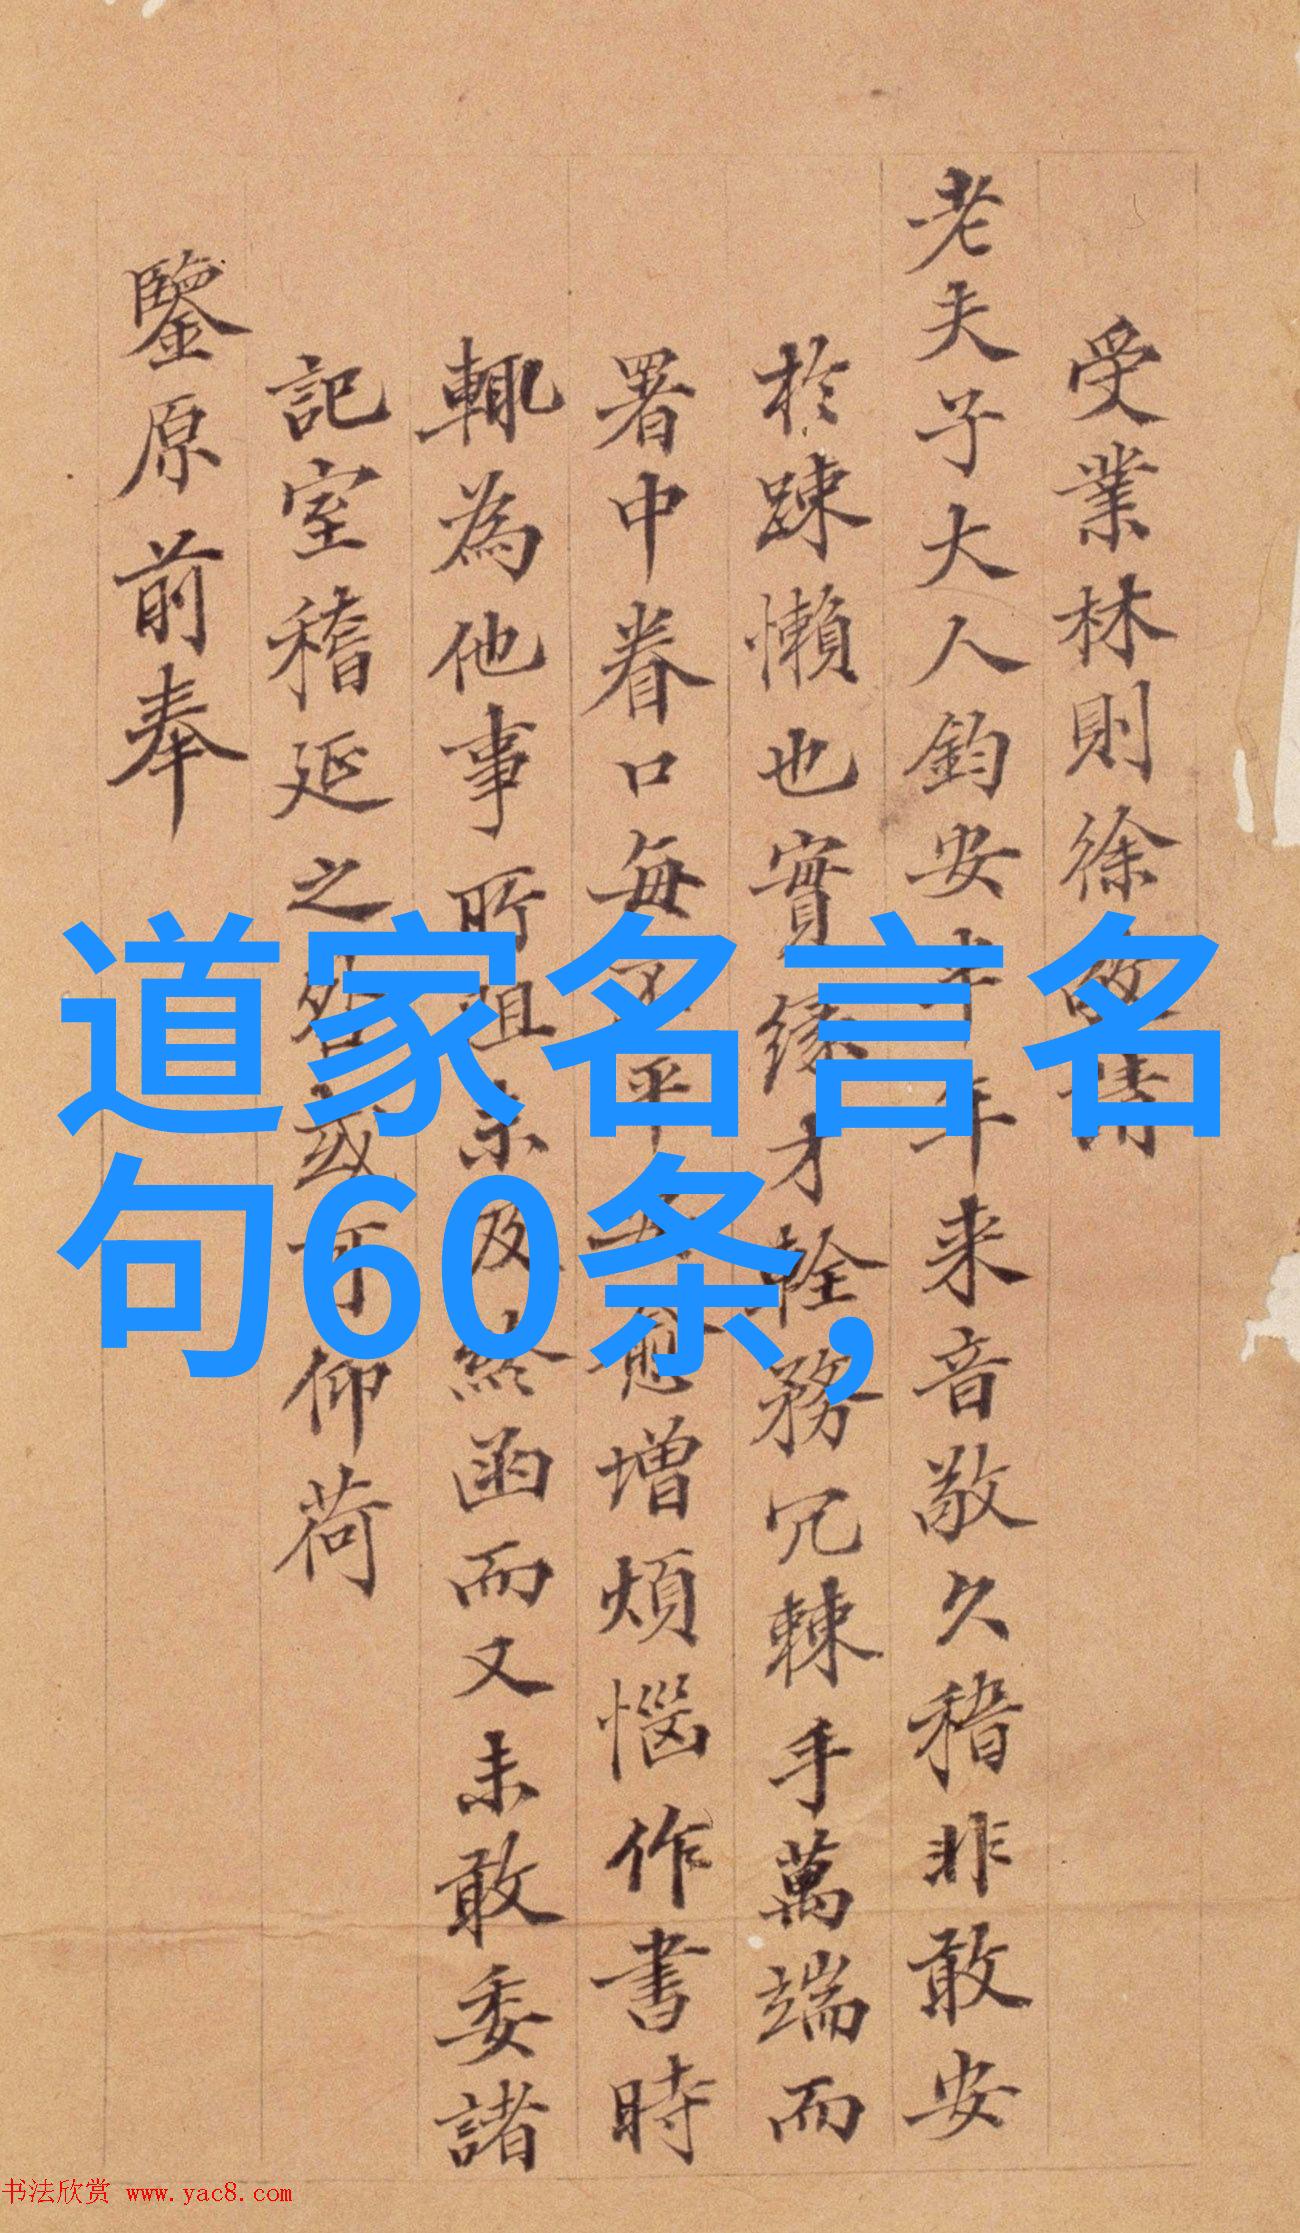 受業林則徐
老夫子大人鈞安 年来音敬久稽非敢安
於踈懶也實緣才輇務冗棘手萬端而
署中眷口每 愈增煩惱作書時
輒為他事所阻未及終函而又未敢委諸
記室稽延之 或可仰荷
鑒原前奉
道家名言名
句60条,
书法欣赏 www.yac8.com